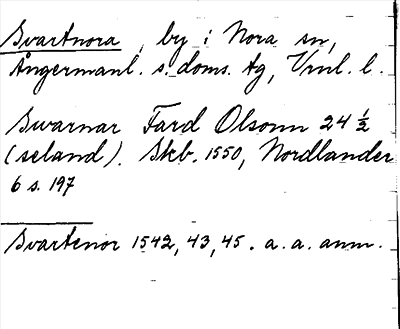 Svartnora, by i Nora sn,
Ångermanl. s. doms. tg, Vnl. l.
Swarnar Fard Olsonn 24 ½
(seland). Skb. 1550, Nordlander
6 s. 197
Svartenor 1542, 43, 45. a. a. anm.